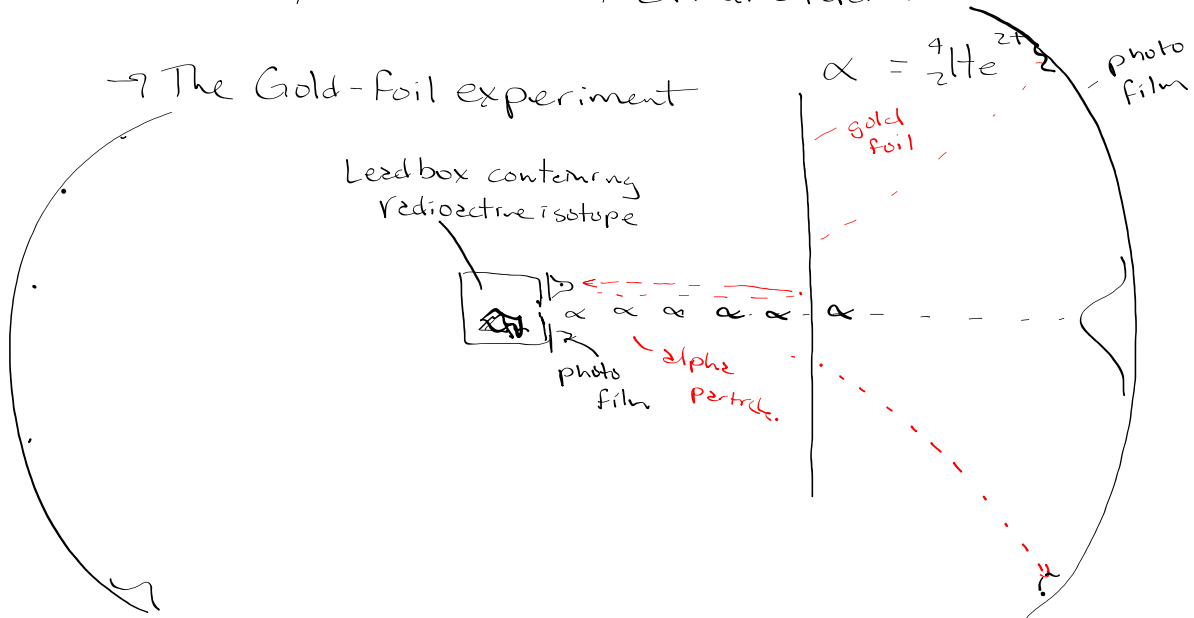 → The Gold-Foil experiment
α = ⁴₂He²⁺
photo
film
gold
foil
Lead box containing
radioactive isotope
α α α α α α
alpha
particle.
photo
film